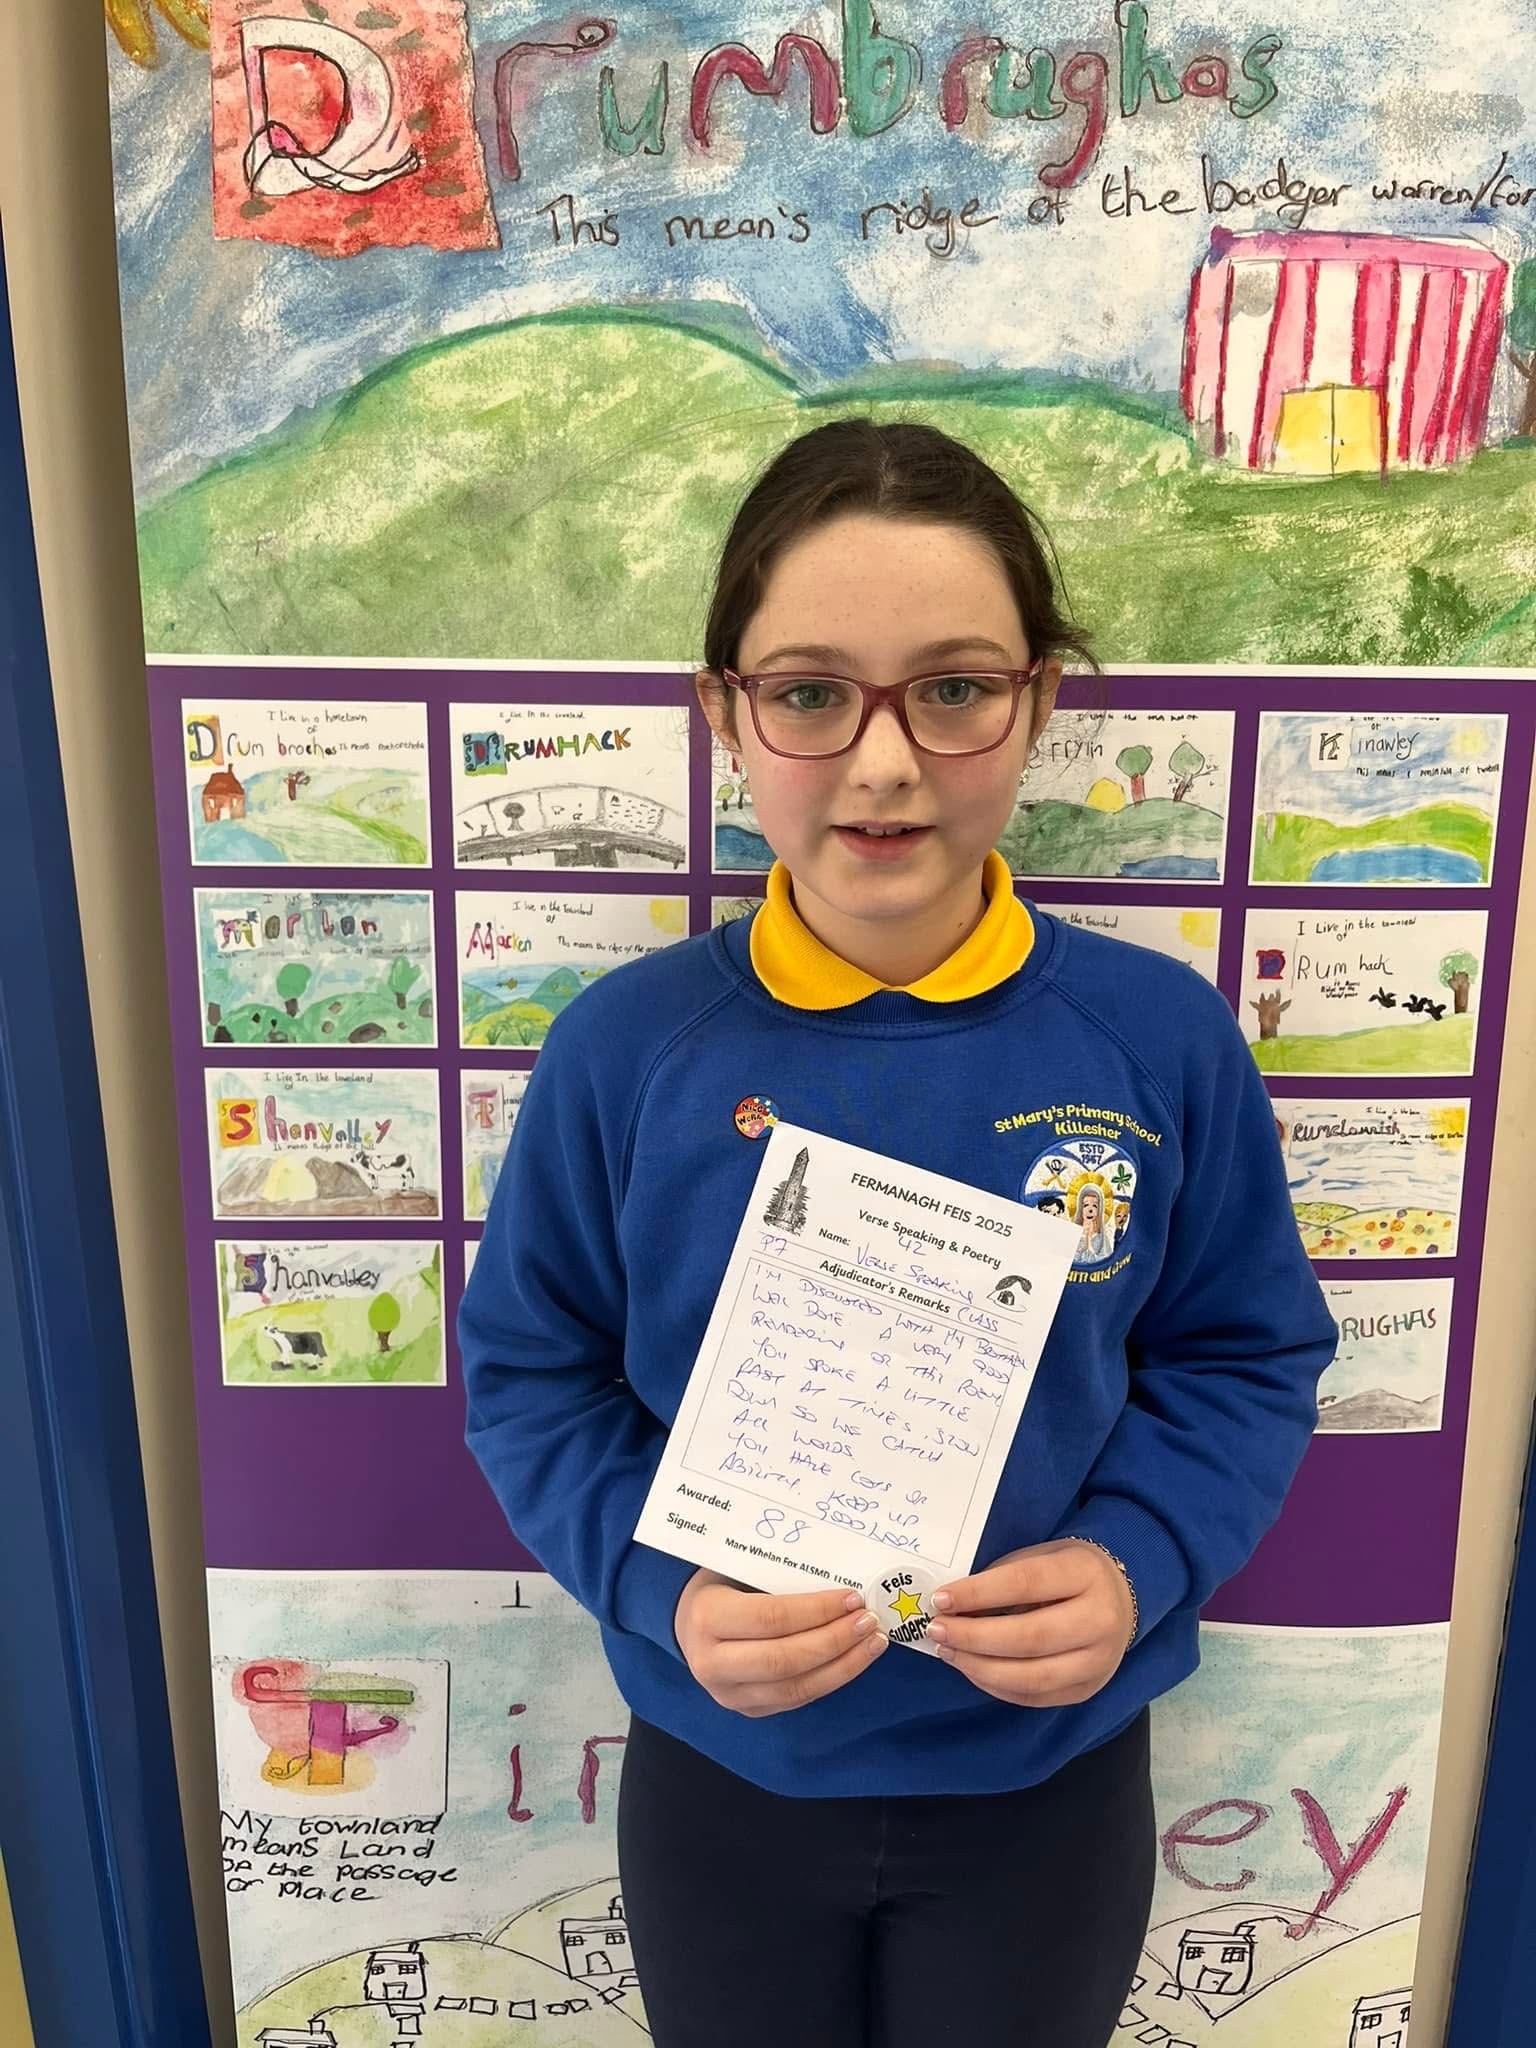 Drumbrughas
This mean's ridge of the badger warren/for
I live in a hometown
of
Drum brochas It means
I live in the townland
of
DRUMHACK
of
Kinawley
this means
Morilan
I live in the Townland
of
Macken This means the ridge of the
I Live in the townland
of
DRum hack
it means
Ridge of the
I Live In the townland
of
Shanvalley
It means Ridge of the hill
I live in the
Drumclawnish
Shanvalley
RUGHAS
Nice
Work
St Mary's Primary School
Killesher
ESTD
1967
Learn and Grow
FERMANAGH FEIS 2025
Verse Speaking & Poetry
42
Name: VERSE SPEAKING
P7 CLASS
Adjudicator's Remarks
I'M DISGUSTED WITH MY BROTHER
WELL DONE. A VERY GOOD
RENDERING OF THIS POEM
YOU SPOKE A LITTLE
FAST AT TIMES. SLOW
DOWN SO WE CATCH
ALL WORDS
YOU HAVE LOTS OF
ABILITY. KEEP UP
GOOD WORK
Awarded: 88
Signed: Mary Whelan Fox ALSMD, LLSMD
Feis
Superst
T in ey
My townland
means Land
of the passage
or place